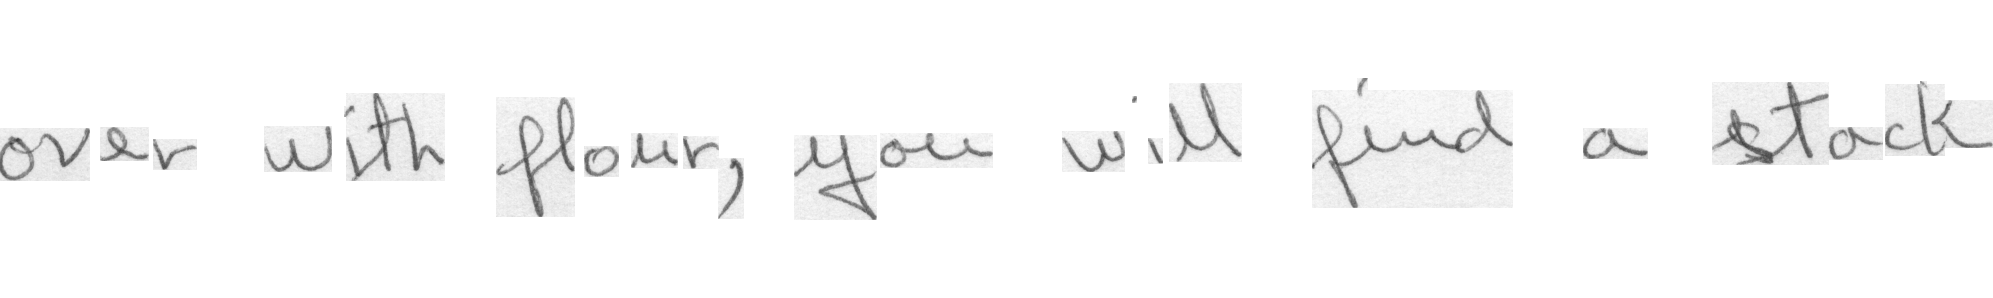 over with flour, you will find a stack